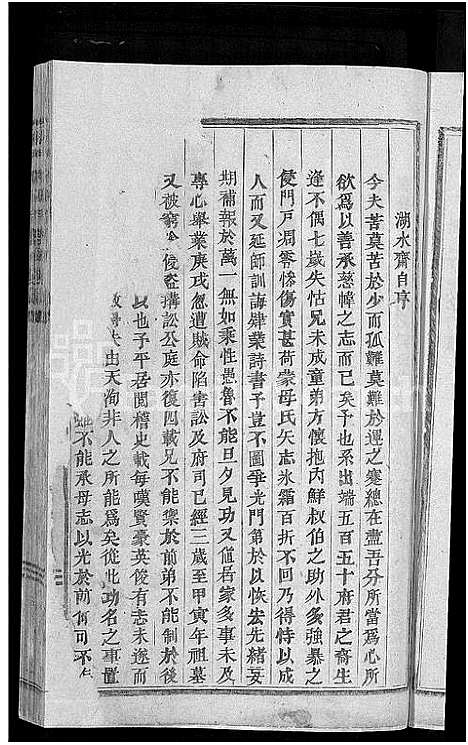 湖水齋自序
今夫苦莫苦於少而孤難莫難於運之蹇總在盡吾分所當爲心所
欲爲以善承慈幃之志而已矣予也系出端五百五十府君之裔生
逢不偶七歲失怙兄未成童弟方懷抱內鮮叔伯之助外多強暴之
侵門戸凋零慘傷實甚荷蒙母氏矢志氷霜百折不回乃得恃以成
人而又延師訓誨肄業詩書予豈不圖爭光門第於以恢宏先緒妄
期補報於萬一無如秉性愚魯不能旦夕見功又值居家多事未及
專心舉業庚戌忽遭賊命陷害訟及府司已經三歲至甲寅年祖墓
又被窮 侵盜搆訟公庭亦復四載兄不能禦於前弟不能制於後
以也予平居閱稽史載每嘆賢豪英俊有志未遂而
由天洵非人之所能爲矣從此功名之事置
雖不能承母志以光於前何可不